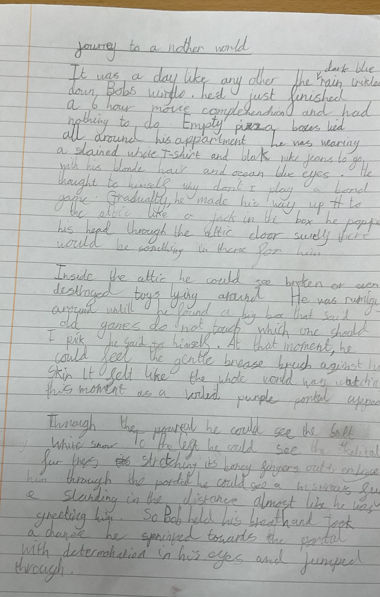 journey to a nother world
dark blue
It was a day like any other the rain trickled
down Bobs window. he'd just finished
a 6 hour movie complehendion and had
nothing to do. Empty pizza boxes lied
all around his appartment he was wearing
a stained white T-shirt and black nike jeans to go
with his blonde hair and ocean blue eyes. He
thought to himself why dont I play a bord
game. Gradually, he made his way up to
the attic like a jack in the box he popped
his head through the attic door surely there
would be something in there for him
Inside the attic he could see broken or even
destroyed toys lying around. He was
around untill he found a big box that said
old games do not touch which one should
I pick he said to himself. At that moment, he
could feel the gentle brease brush against his
skin It felt like the whole world was watching
this moment as a purple portal
Through the he could see the soft
white snow To the left he could see the
fur trees stretching its boney fingers out to
him through the portal he could see a
standing in the distance almost like he was
greeting him. So Bob held his breath and took
a chance he sprinted towards the portal
with determation in his eyes and jumped
through.